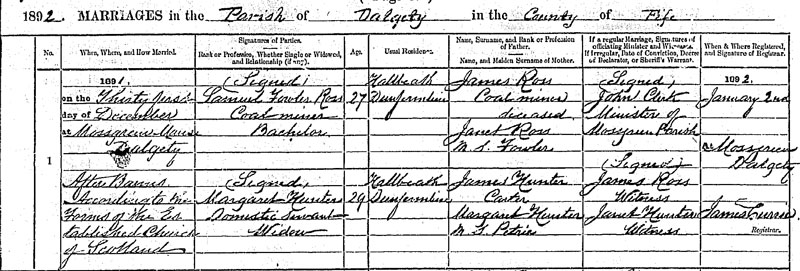 1892. MARRIAGES in the Parish of Dalgety in the County of Fife
No.
When, Where, and How Married.
Signatures of Parties.
Rank or Profession, Whether Single or Widowed, and Relationship (if any).
Age.
Usual Residence.
Name, Surname, and Rank or Profession of Father.
Name, and Maiden Surname of Mother.
If a regular Marriage, Signatures of officiating Minister and Witnesses.
If Irregular, Date of Conviction, Decree of Declarator, or Sheriff's Warrant.
When & Where Registered, and Signature of Registrar.
1
1891.
on the Thirty first
day of December
at Mossgreen Manse
Dalgety
After Banns
According to the
Forms of the Es
tablished Church
of Scotland
(Signed)
Samuel Fowler Ross
Coal miner
Bachelor
(Signed)
Margaret Hunter
Domestic Servant
Widow
27
29
Hallbeath
Dunfermline
Hallbeath
Dunfermline
James Ross
Coal miner
deceased
Janet Ross
M. S. Fowler
James Hunter
Carter
Margaret Hunter
M. S. Petrie
(Signed)
John Clerk
Minister of
Mossgreen Parish
(Signed)
James Ross
Witness
Janet Hunter
Witness
1892.
January 2nd
At Mossgreen
Dalgety
James Currie
Registrar.